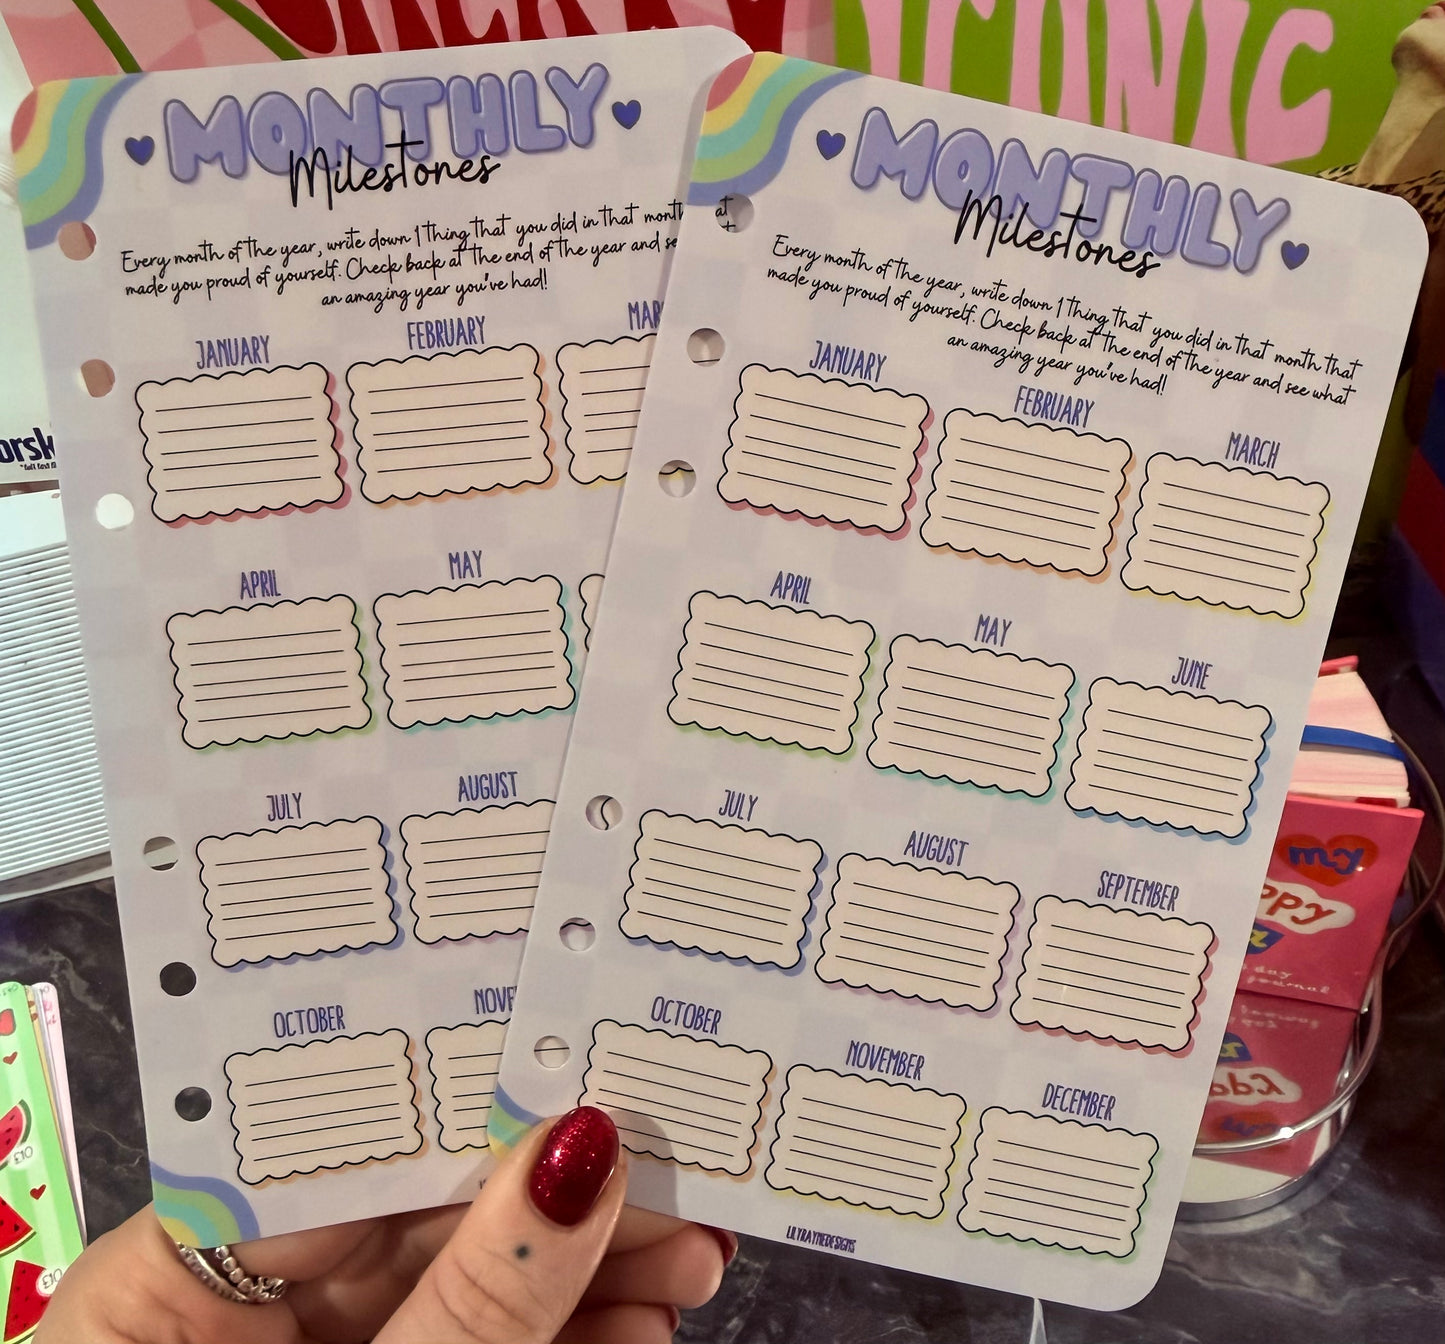 ICONIC
MONTHLY
Milestones
Every month of the year, write down 1 thing that you did in that month
made you proud of yourself. Check back at the end of the year and
an amazing year you've had!
JANUARY
FEBRUARY
APRIL
MAY
JULY
AUGUST
OCTOBER
MONTHLY
Milestones
Every month of the year, write down 1 thing that you did in that month that
made you proud of yourself. Check back at the end of the year and see what
an amazing year you've had!
JANUARY
FEBRUARY
MARCH
APRIL
MAY
JUNE
JULY
AUGUST
SEPTEMBER
OCTOBER
NOVEMBER
DECEMBER
LILYRAYNEDESIGNS
my
day
journal
013